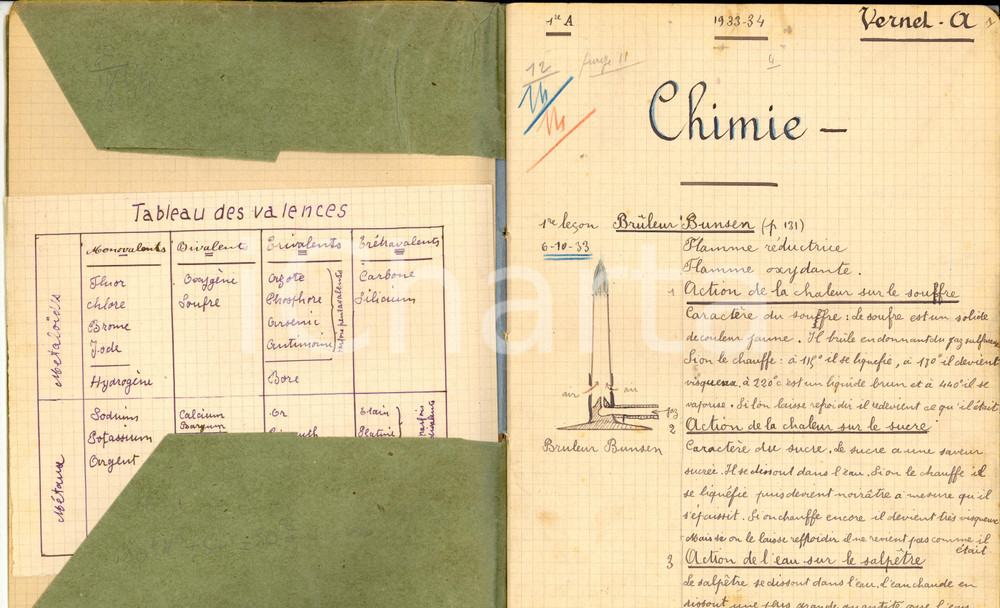 Tableau des valences
Monovalents Bivalents Trivalents Tétravalents
Métalloïdes
Fluor Oxygène Azote Carbone
Chlore Soufre Phosphore Silicium
Brome Arsenic
Iode Antimoine
parfois pentavalents
Hydrogène Bore
Métaux
Sodium Calcium Or Etain
Potassium Baryum Platine
Argent
parfois
1re A 1933-34 Vernel - A
12
14
14
Chimie -
1re leçon Brûleur Bunsen (p 131)
6-10-33 Flamme réductrice
Flamme oxydante.
1 Action de la chaleur sur le souffre
Caractère du souffre : le soufre est un solide
de couleur jaune. Il brûle en donnant du gaz sulfureux
Si on le chauffe : à 115° il se liquefie, à 170° il devient
visqueux, à 220° c'est un liquide brun et à 440° il se
vaporise. Si on laisse refroidir il redevient ce qu'il était
air air
Bruleur Bunsen
2 Action de la chaleur sur le sucre
Caractère du sucre. Le sucre a une saveur
sucrée. Il se dissout dans l'eau. Si on le chauffe il
se liquéfie puis devient noirâtre a mesure qu'il
s'épaissit. Si on chauffe encore il devient très visqueux
Mais si on le laisse reffroidir il ne revient pas comme il
était
3 Action de l'eau sur le salpêtre
Le salpêtre se dissout dans l'eau. L'eau chaude en
dissout une plus grande quantité que l'eau
fitchart